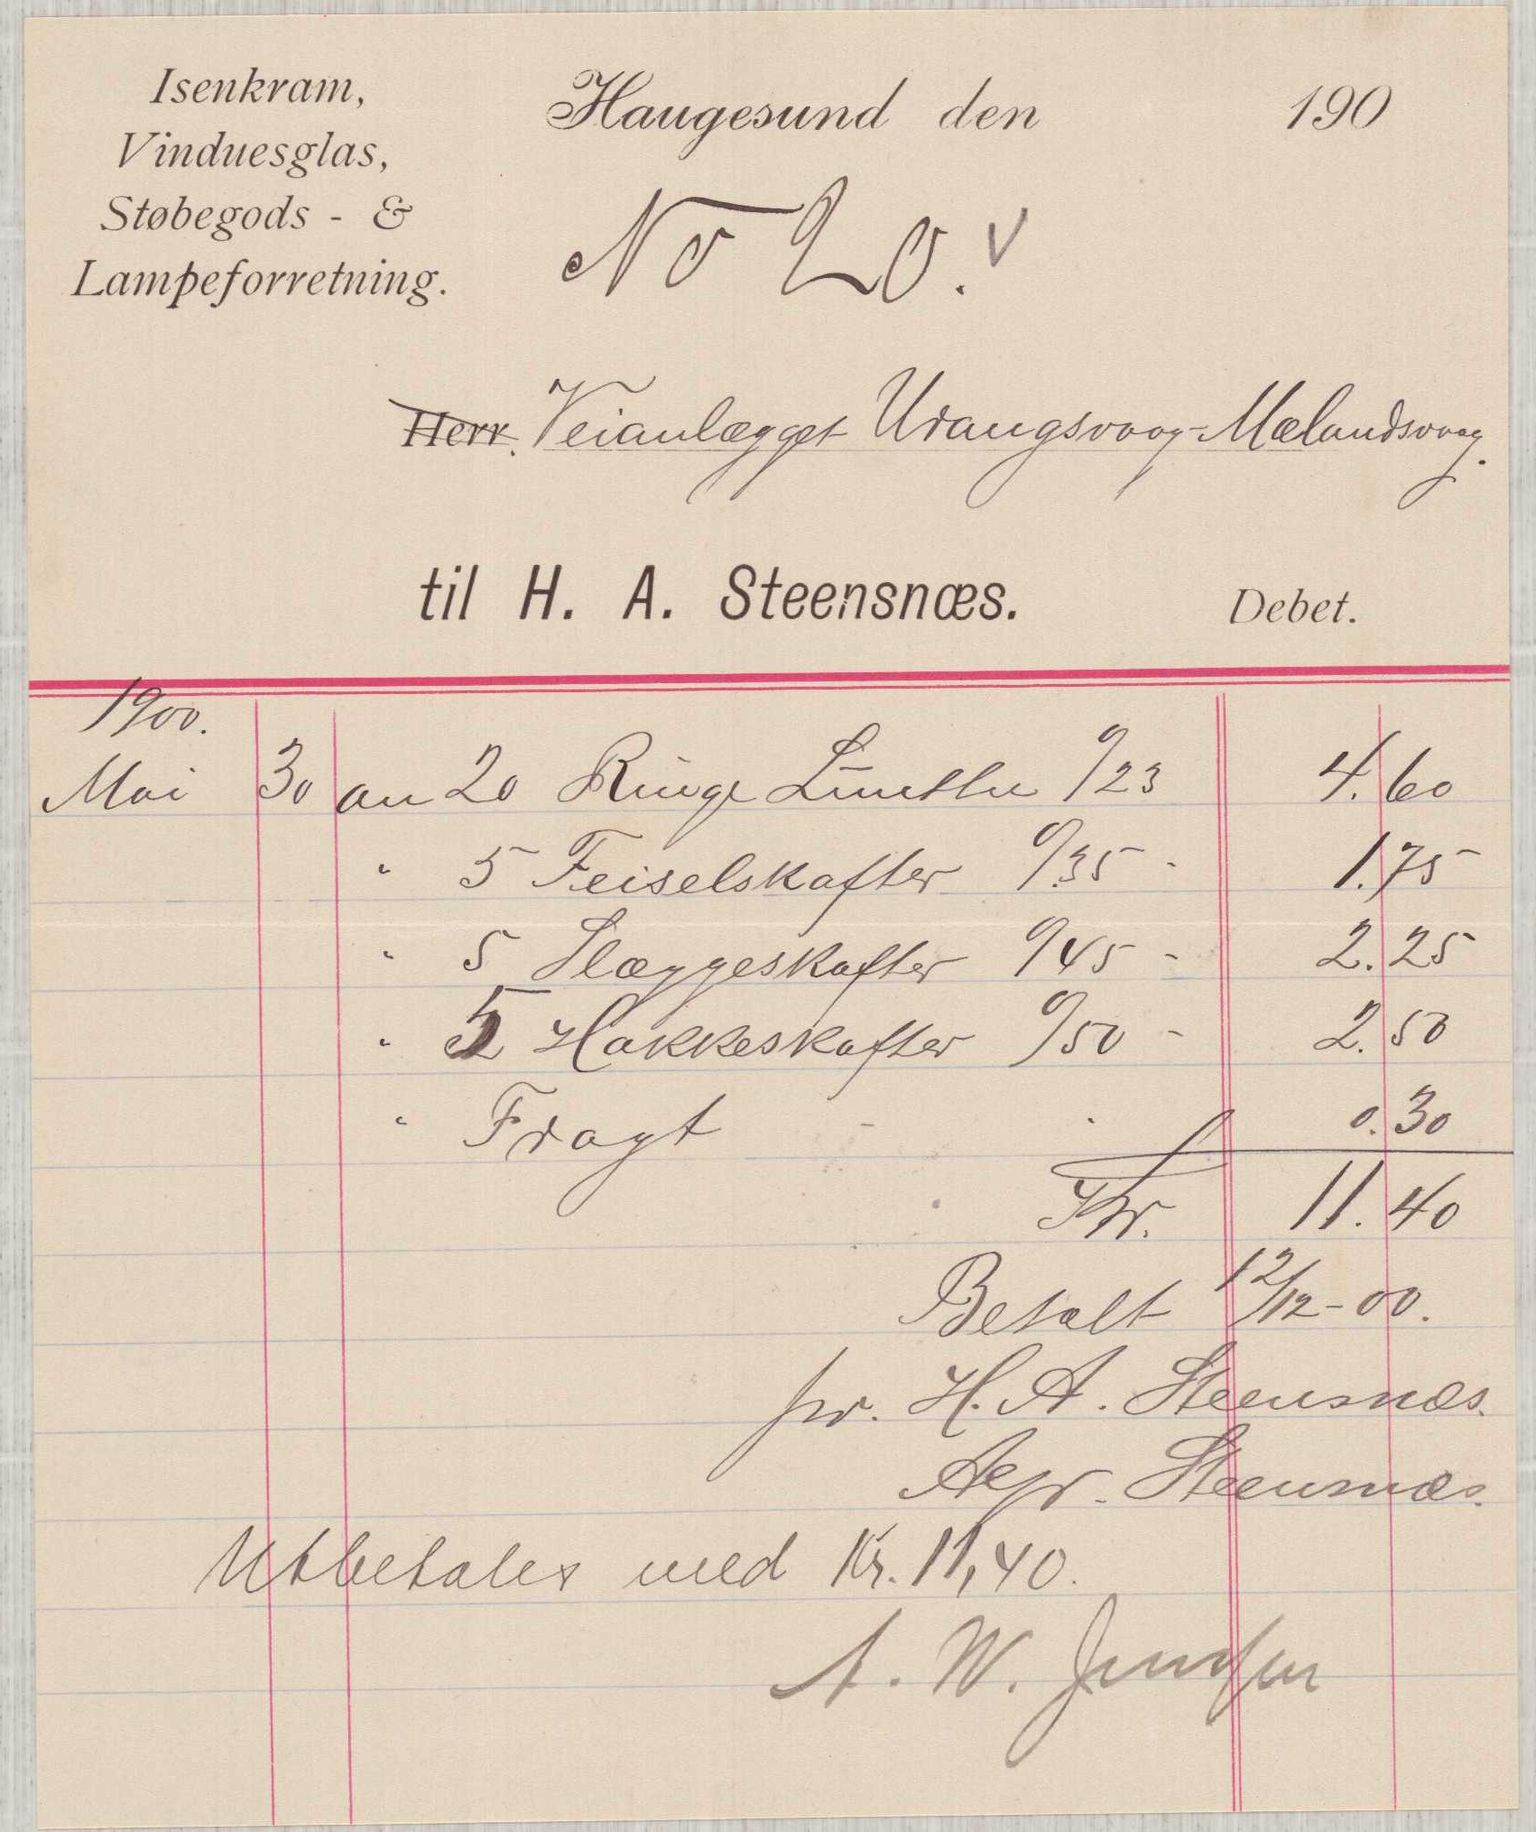 Isenkram,
Vinduesglas,
Støbegods - &
Lampeforretning.
Haugesund den 190
No 20. v
Herr. Veianlægget Urangsvaag-Mælandsvaag.
til H. A. Steensnæs. Debet.
1900.
Mai 30 an 20 Ringe Lunthe a/23 4.60
" 5 Feiselskafter a/35 - 1.75
" 5 Slæggeskafter a/45 - 2.25
" 5 Hakkeskafter a/50 - 2.50
" Fragt - - 0.30
Kr. 11.40
Betalt 12/12-00.
pr. H. A. Steensnæs.
Steensnæs.
Utbetales med Kr. 11,40.
A. W. Jensen